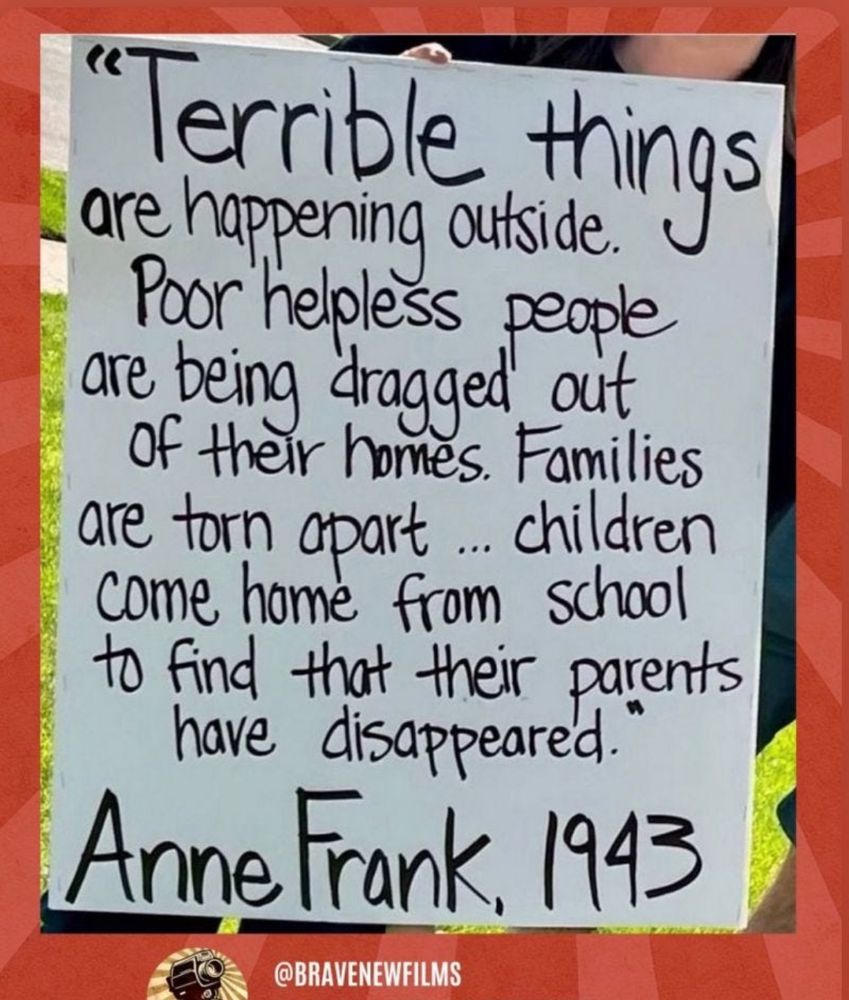 “Terrible things
are happening outside.
Poor helpless people
are being dragged out
of their homes. Families
are torn apart ... children
come home from school
to find that their parents
have disappeared."
Anne Frank, 1943
@BRAVENEWFILMS